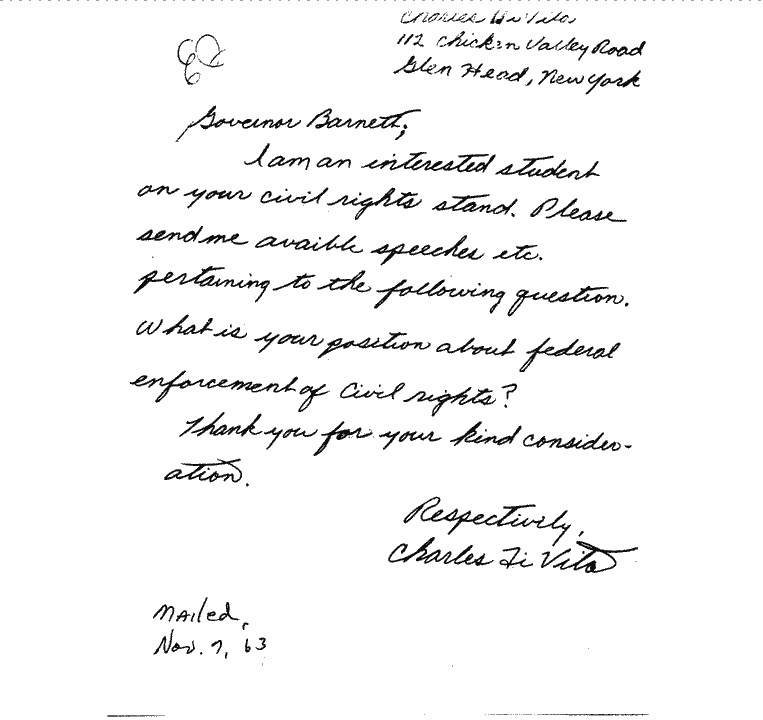 Charles DiVito
112 Chicken Valley Road
Glen Head, New York
Governor Barnett;
I am an interested student
on your civil rights stand. Please
send me avaible speeches etc.
pertaining to the following question.
What is your position about federal
enforcement of Civil rights?
Thank you for your kind consider-
ation.
Respectivily,
Charles Di Vito
Mailed,
Nov. 7, 63